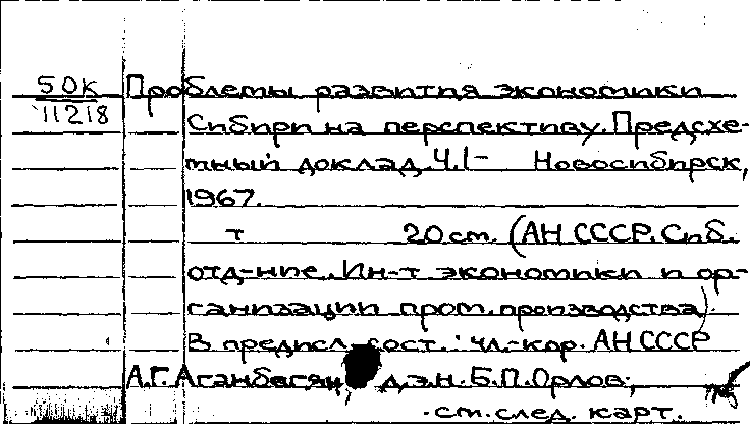 50К Проблемы развития экономики
11218 Сибири на перспективу. Предсме-
тный доклад. Ч.1- Новосибирск,
1967.
т 20 см. (АН СССР. Сиб.
отд-ние. Ин-т экономики и ор-
ганизации пром. производства).
В предисл. сост.: чл.-кор. АН СССР
А.Г. Аганбегян, д.э.н. Б.П. Орлов;
см. след. карт.